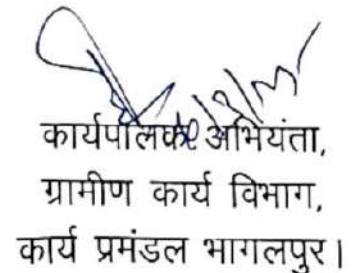 कार्यपालक अभियंता,
ग्रामीण कार्य विभाग,
कार्य प्रमंडल भागलपुर।